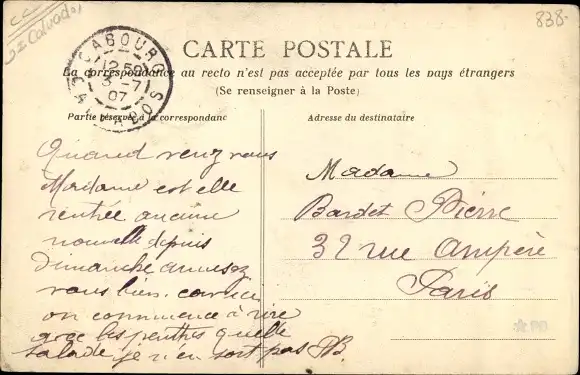 Calvados
838-
CABOURG
12 50
3 -7
07
CALVADOS
CARTE POSTALE
La correspondance au recto n'est pas acceptée par tous les pays étrangers
(Se renseigner à la Poste)
Partie réservée à la correspondance
Adresse du destinataire
Quand venez vous
Madame est elle
rentrée aucune
nouvelle depuis
dimanche amusez
vous bien.
on commence à rire
avec les quelle
salade je n'en sort pas PB.
Madame
Bardet Pierre
32 rue Ampère
Paris
PB